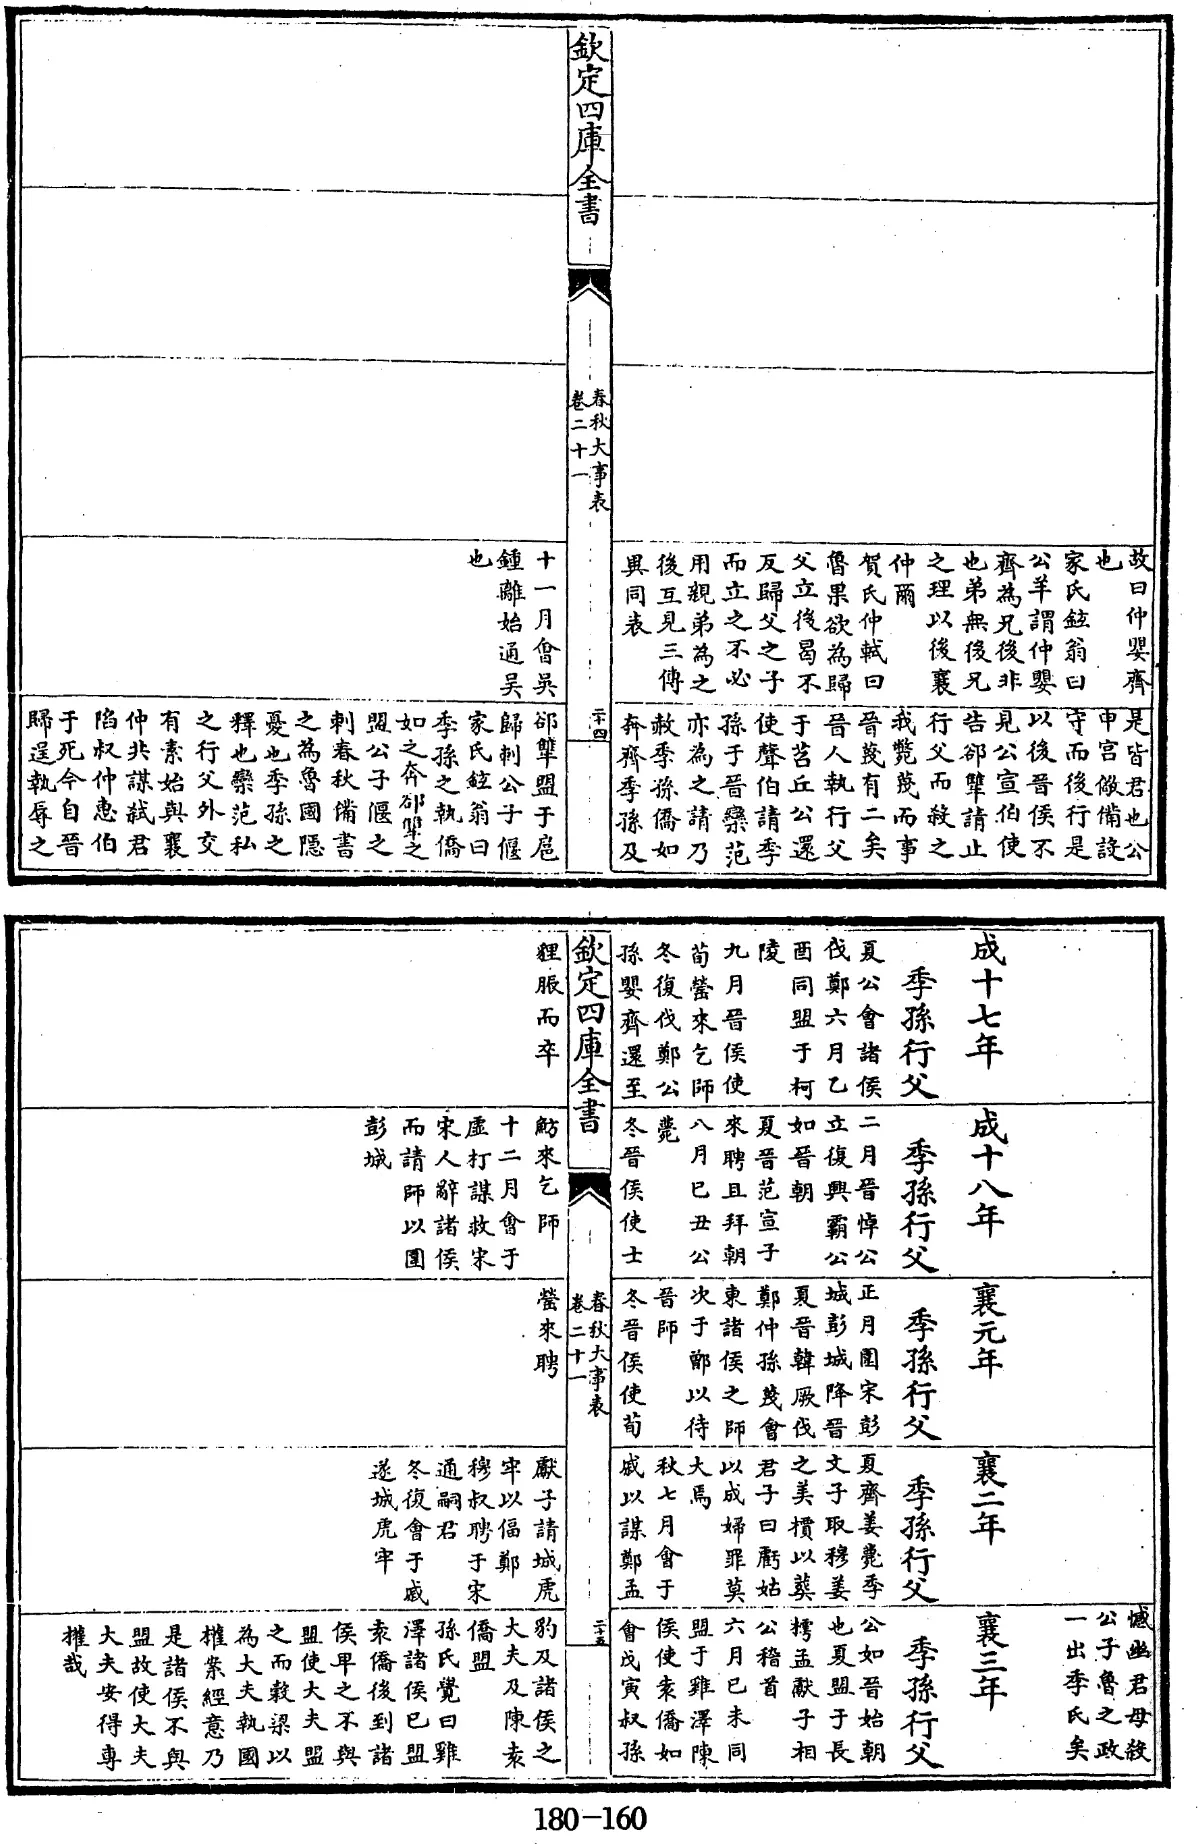 故曰仲嬰齊
也
家氏鉉翁曰
公羊謂仲嬰
齊為兄後非
也弟無後兄
之理以後襄
仲爾
賀氏仲軾曰
魯果欲為歸
父立後曷不
反歸父之子
而立之不必
用親弟為之
後互見三傳
異同表
是皆君也公
申宮儆備設
守而後行是
以後晉侯不
見公宣伯使
告郤犫請止
行父而殺之
我斃蔑而事
晉蔑有二矣
晉人執行父
于苕丘公還
使聲伯請季
孫于晉欒范
亦為之請乃
赦季孫僑如
奔齊季孫及
欽定四庫全書
春秋大事表
卷二十一
二十四
十一月會吳
鍾離始通吳
也
郤犫盟于扈
歸刺公子偃
家氏鉉翁曰
季孫之執僑
如之奔郤犫之
盟公子偃之
刺春秋備書
之為魯國隱
憂也季孫之
釋也欒范私
之行父外交
有素始與襄
仲共謀弑君
陷叔仲惠伯
于死今自晉
歸逞執辱之
憾幽君母殺
公子魯之政
一出季氏矣
成十七年
季孫行父
夏公會諸侯
伐鄭六月乙
酉同盟于柯
陵
九月晉侯使
荀罃來乞師
冬復伐鄭公
孫嬰齊還至
成十八年
季孫行父
二月晉悼公
立復興霸公
如晉朝
夏晉范宣子
來聘且拜朝
八月已丑公
薨
冬晉侯使士
襄元年
季孫行父
正月圍宋彭
城彭城降晉
夏晉韓厥伐
鄭仲孫蔑會
東諸侯之師
次于鄫以待
晉師
冬晉侯使荀
襄二年
季孫行父
夏齊姜薨季
文子取穆姜
之美檟以葬
君子曰虧姑
以成婦罪莫
大焉
秋七月會于
戚以謀鄭孟
襄三年
季孫行父
公如晉始朝
也夏盟于長
樗孟獻子相
公稽首
六月已未同
盟于雞澤陳
侯使袁僑如
會戊寅叔孫
欽定四庫全書
春秋大事表
卷二十一
二十五
貍脤而卒
魴來乞師
十二月會于
虛朾謀救宋
宋人辭諸侯
而請師以圍
彭城
罃來聘
獻子請城虎
牢以偪鄭
穆叔聘于宋
通嗣君
冬復會于戚
遂城虎牢
豹及諸侯之
大夫及陳袁
僑盟
孫氏覺曰雞
澤諸侯已盟
袁僑後到諸
侯卑之不與
盟使大夫盟
之而穀梁以
為大夫執國
權案經意乃
是諸侯不與
盟故使大夫
大夫安得專
權哉
180-160